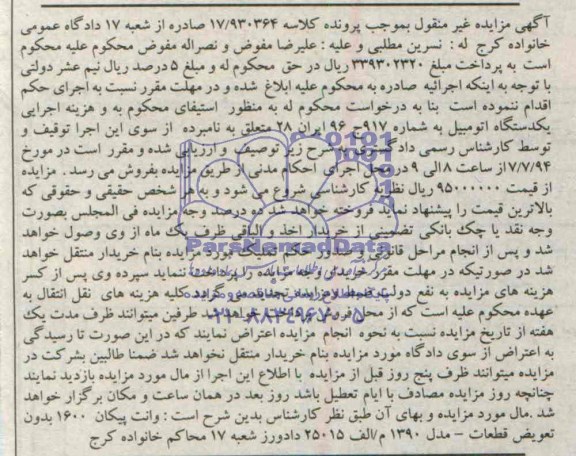 آگهی مزایده غیر منقول بموجب پرونده کلاسه ۱۷/۹۳۰۳۶۴ صادره از شعبه ۱۷ دادگاه عمومی
خانواده کرج له : نسرین مطلبی و علیه : علیرضا مفوض و نصراله مفوض محکوم علیه محکوم
است به پرداخت مبلغ ۳۳۹۳۰۲۳۲۰ ریال در حق محکوم له و مبلغ ۵ درصد ریال نیم عشر دولتی
با توجه به اینکه اجرائیه صادره به محکوم علیه ابلاغ شده و در مهلت مقرر نسبت به اجرای حکم
اقدام ننموده است بنا به درخواست محکوم له به منظور استیفای محکوم به و هزینه اجرایی
یکدستگاه اتومبیل به شماره ۹۱۷ج ۹۶ ایران ۲۸ متعلق به نامبرده از سوی این اجرا توقیف و
توسط کارشناس رسمی دادگستری به شرح زیر توصیف و ارزیابی شده و مقرر است در مورخ
۷/۷/۹۴ از ساعت ۸ الی ۹ در محل اجرای احکام مدنی از طریق مزایده بفروش می رسد . مزایده
از قیمت ۹۵۰۰۰۰۰۰ ریال نظریه کارشناسی شروع می شود و به هر شخص حقیقی و حقوقی که
بالاترین قیمت را پیشنهاد نماید فروخته خواهد شد ده درصد وجه مزایده فی المجلس بصورت
وجه نقد یا چک بانکی تضمینی از خریدار اخذ و الباقی ظرف یک ماه از وی وصول خواهد
شد و پس از انجام مراحل قانونی و صدور حکم تملیک مورد مزایده بنام خریدار منتقل خواهد
شد در صورتیکه در مهلت مقرر خریدار وجه مزایده را پرداخت ننماید سپرده وی پس از کسر
هزینه های مزایده به نفع دولت ضبط و مزایده تجدید می گردد کلیه هزینه های نقل انتقال به
عهده محکوم علیه است که از محل فروش پرداخت خواهد شد طرفین میتوانند ظرف مدت یک
هفته از تاریخ مزایده نسبت به نحوه انجام مزایده اعتراض نمایند که در این صورت تا رسیدگی
به اعتراض از سوی دادگاه مورد مزایده بنام خریدار منتقل نخواهد شد ضمنا طالبین بشرکت در
مزایده میتوانند ظرف پنج روز قبل از مزایده با اطلاع این اجرا از مال مورد مزایده بازدید نمایند
چنانچه روز مزایده مصادف با ایام تعطیل باشد روز بعد در همان ساعت و مکان برگزار خواهد
شد .مال مورد مزایده و بهای آن طبق نظر کارشناس بدین شرح است : وانت پیکان ۱۶۰۰ بدون
تعویض قطعات – مدل ۱۳۹۰ م/الف ۲۵۰۱۵ دادورز شعبه ۱۷ محاکم خانواده کرج
ParsNamadData
۰۲۱-۸۸۳۴۹۶۷۰-۵